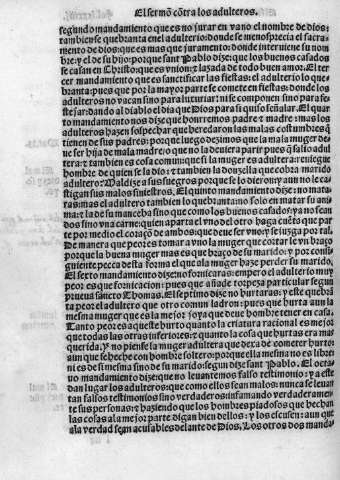 El sermō cōtra los adulteros.
segundo mandamiento que es no jurar en vano el nombre de dios:
tambien se quebranta en el adulterio: donde se menosprecia el sacra-
mento de dios: que es mas que juramento: donde interviene su nom-
bre y el de su hijo: porque sant Pablo dize: que los buenos casados
se casan en Christo: que es vnion: y lazada de todo buen amor. El ter
cer mandamiento que es sanctificar las fiestas: el adulterio lo que-
branta: pues que por la mayor parte se comete en fiestas: donde los
adulteros no vacan sino para luxuriar: ni se componen sino para fe-
stejar: dando al diablo el dia que Dios para si quiso señalar. El quar
to mandamiento nos dize que honrremos padre e madre: mas los
adulteros hazen sospechar que heredaron las malas costumbres q̄
tienen de sus padres: porque luego dezimos que la mala muger de
ue ser hija de mala madre: o que no la deuiera parir pues q̄ salio adul
tera: e tambien es cosa comun: que si la muger es adultera: reniegue el
hombre de quien se la dio: e tambien la donzella que cobra marido
adultero: Maldize a sus suegros porque se lo dieron: y aun no le ca
stigan sus malos siniestros. El quinto mandamiento dize: no mata-
ras: mas el adultero tambien lo quebranta: no solo en matar su ani-
ma: e la de su manceba sino que como los buenos casados: ya no sean
dos sino vna carne: quien aparta el vno del otro haga cuēta que par
te por medio el coraçō de ambos: que deue ser vno: y se juzga por tal.
De manera que peor es tomar a vno la muger que cortar le vn braço
porque la buena muger mas es que braço de su marido: y por consi-
guiente pecca desta forma el que a la muger haze perder su marido.
El sexto mandamiento dize: no fornicaras: empero el adulterio muy
peor es que fornicacion: pues que añade torpeza particular segun
prueua sancto Thomas. El septimo dize no hurtaras: y este queda
ta peor el adultero que otro comun ladron: pues que hurta aun la
mesma muger que es la mejor joya que deue hombre tener en casa.
Tanto peor es aqueste hurto quanto la criatura racional es mejor
que todas las otras inferiores: e quanto la cosa que hurtas era mas
querida. y no piense la muger adultera que dexa de cometer hurto:
aun que se heche con hombre soltero: porque ella mesma no es libre
ni es de si mesma sino de su marido: segun dize sant Pablo. El octa-
uo mandamiento dize: que no leuantemos falso testimonio: y a este
dan lugar los adulteros: que como ellos sean malos: nunca se leuan
tan falsos testimonios sino verdaderos: infamando verdaderamen-
te sus personas: e haziendo que los hombres piadosos que hechan
las cosas a la mejor parte digan bien dellos: y los escusen: aun que
a la verdad sean acusables delante de Dios. Los otros dos manda-